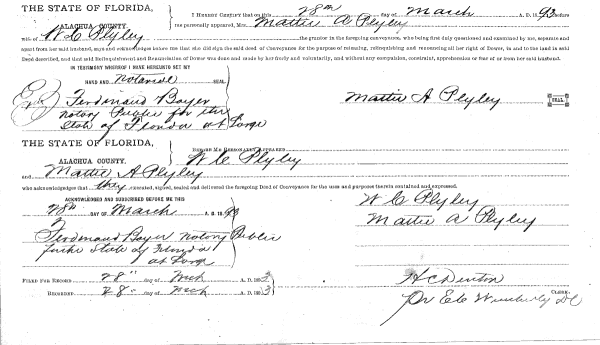 THE STATE OF FLORIDA,
ALACHUA COUNTY.
I HEREBY CERTIFY that on this 28th day of March A. D. 1893 before
me personally appeared, Mrs. Mattie A Plyley
wife of W. C. Plyley the grantor in the foregoing conveyance, who being thus duly questioned and examined by me, separate and
apart from her said husband, says and acknowledges before me that she did sign the said deed of Conveyance for the purpose of releasing, relinquishing and renouncing all her right of Dower, in and to the land in said
Deed described, and that said Relinquishment and Renunciation of Dower was done and made by her freely and voluntarily, and without any compulsion, constraint, apprehension or fear of or from her said husband.
IN TESTIMONY WHEREOF I HAVE HEREUNTO SET MY
HAND AND Notarial SEAL
Ferdinand Bayer
Notary Public for the
State of Florida at Large
Mattie A Plyley SEAL
THE STATE OF FLORIDA,
ALACHUA COUNTY.
BEFORE ME PERSONALLY APPEARED W C Plyley
and Mattie A Plyley
who acknowledges that they executed, signed, sealed and delivered the foregoing Deed of Conveyance for the uses and purposes therein contained and expressed.
ACKNOWLEDGED AND SUBSCRIBED BEFORE ME THIS
28th DAY OF March A. D. 1893
Ferdinand Bayer Notary Public
for the State of Florida
at Large
W C Plyley
Mattie A Plyley
FILED FOR RECORD 28" day of Mch A. D. 1893
RECORDED 28" day of Mch A. D. 1893
H C Denton CLERK.
Pr E. C. Wimberly DC